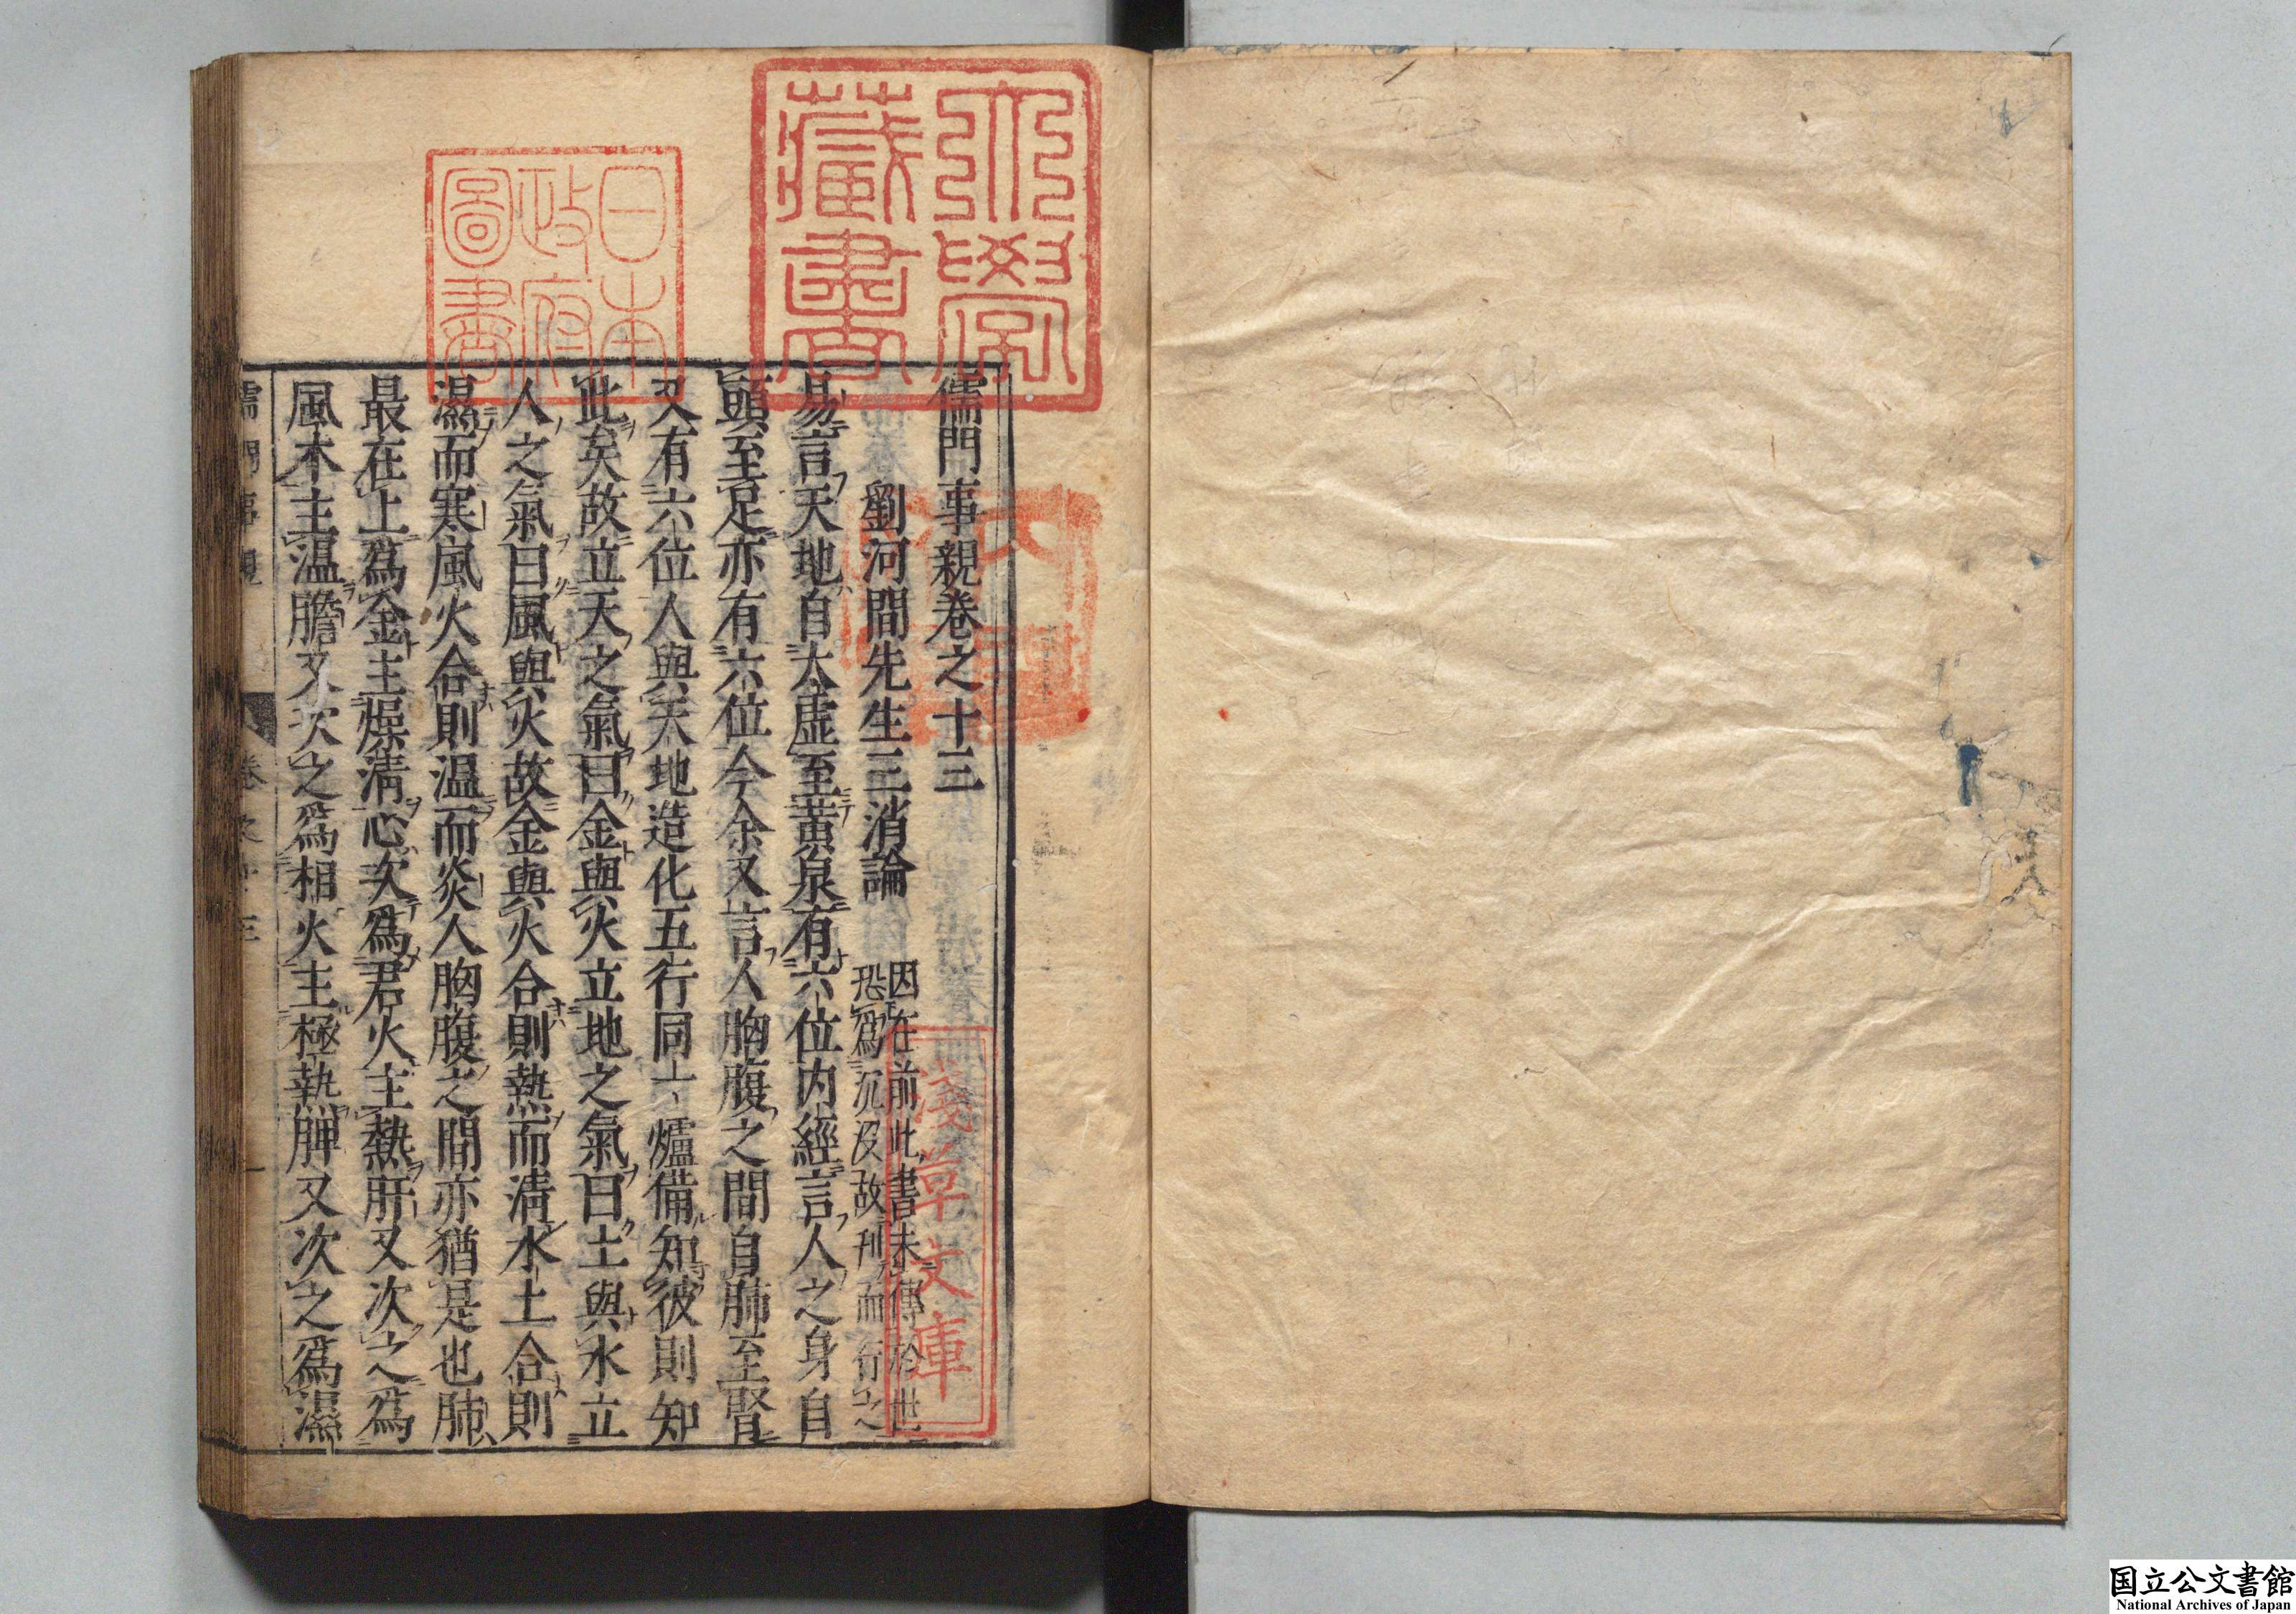 儒門事親卷之十三
劉河間先生三消論
因在前此書未傳於世
恐爲沉沒故刊而行之
易言天地自太虛至黃泉有六位内經言人之身自
頭至足亦有六位今余又言人胸腹之間自肺至腎
又有六位人與天地造化五行同一爐備知彼則知
此矣故立天之氣曰金與火立地之氣曰土與水立
人之氣曰風與火故金與火合則熱而淸水土合則
濕而寒風火合則温而炎人胸腹之間亦猶是也肺
最在上爲金主燥淸心次爲君火主熱肝又次之爲
風木主温膽又次之爲相火主極熱脾又次之爲濕
大學藏書
日本政府圖書
淺草文庫
国立公文書館
National Archives of Japan